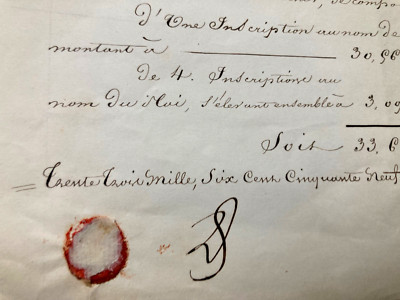 , se compo
D'Une Inscription au nom de
montant à 30,56
de 4. Inscriptions au
nom du Roi, s'élevant ensemble à 3,09
Soit 33,6
= Trente Trois Mille, Six Cent Cinquante Neuf